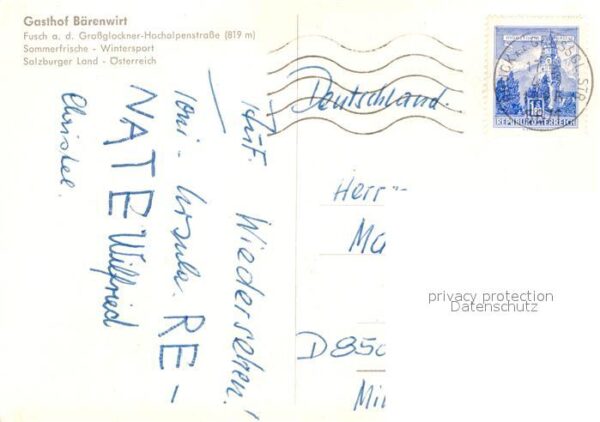 Gasthof Bärenwirt
Fusch a. d. Großglockner-Hochalpenstraße (819 m)
Sommerfrische - Wintersport
Salzburger Land - Österreich
Auf Wiedersehen!
Toni - Ursula. RE-
NATE Wilfried
Christel.
Deutschland.
REPUBLIK ÖSTERREICH
Herr
Ma
D 850
privacy protection
Datenschutz